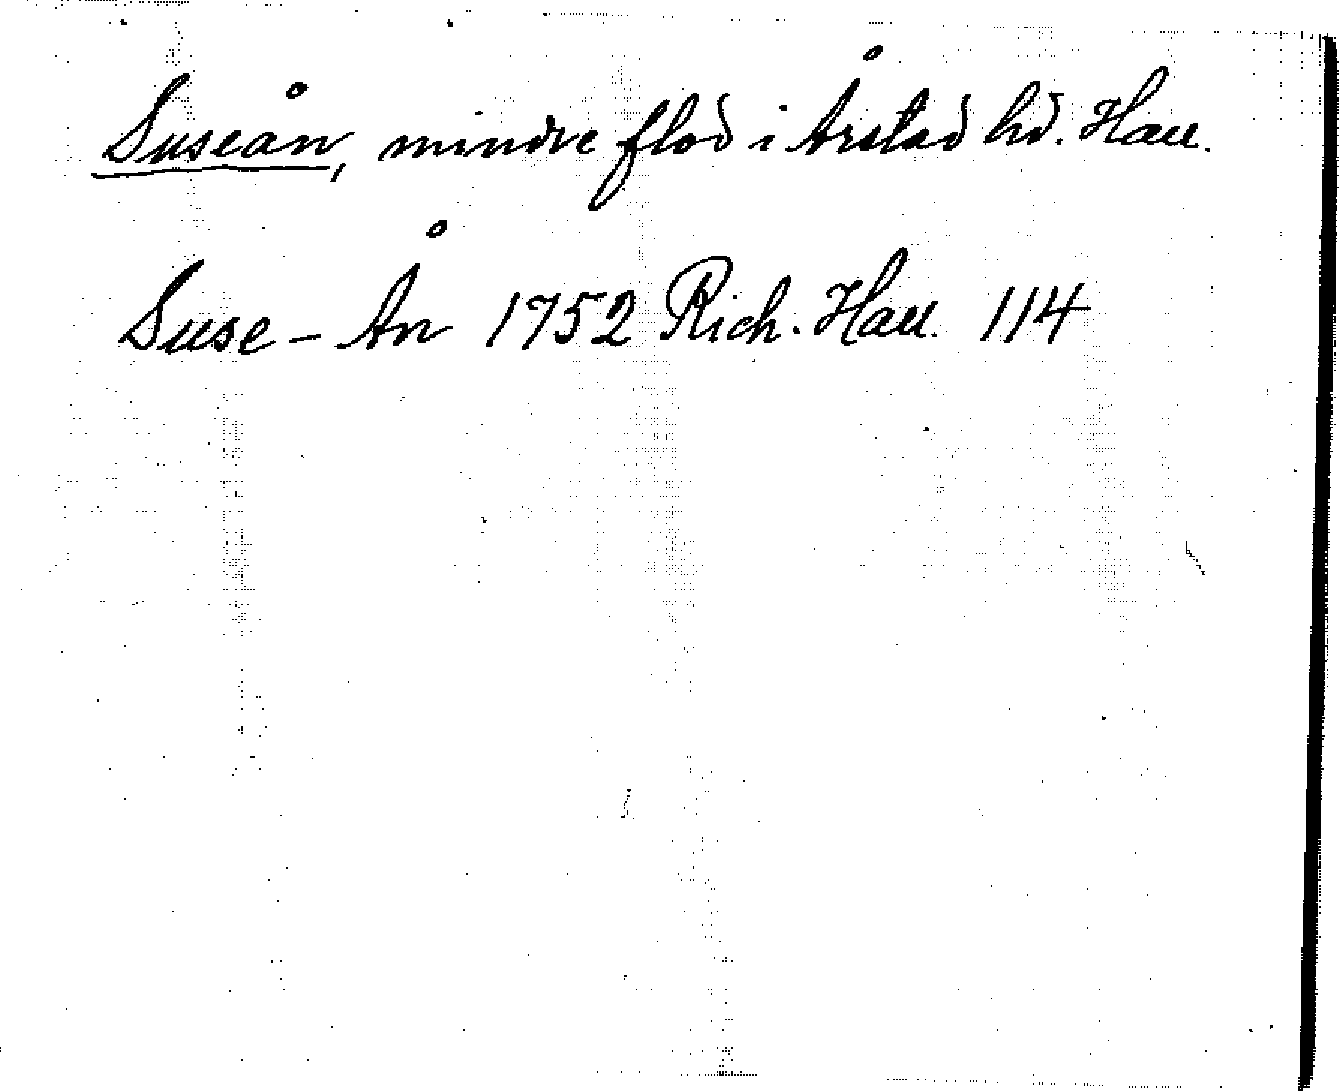 Suseån, mindre flod i Årstad hd. Hall.
Suse-Ån 1752 Rich. Hall. 114